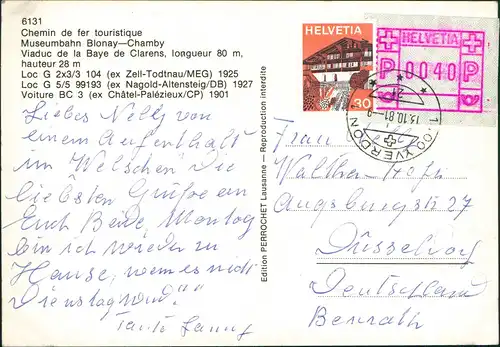 6131
Chemin de fer touristique
Museumbahn Blonay—Chamby
Viaduc de la Baye de Clarens, longueur 80 m,
hauteur 28 m
Loc G 2x3/3 104 (ex Zell-Todtnau/MEG) 1925
Loc G 5/5 99193 (ex Nagold-Altensteig/DB) 1927
Voiture BC 3 (ex Châtel-Palézieux/CP) 1901
Liebes Nelly von
einem Aufenthalt
im Welschen die
liebsten Grüße an
Euch Beide, Montag
bin ich wieder zu
Hause, wenn es nicht
Dienstag wird!
Tante Fanny
Edition PERROCHET Lausanne — Reproduction interdite
HELVETIA
30
HELVETIA
P 0040 P
13.10.81
YVERDON
Frau
Walther-Hofer
Augsburgstr 27
Düsseldorf
Deutschland
Benrath